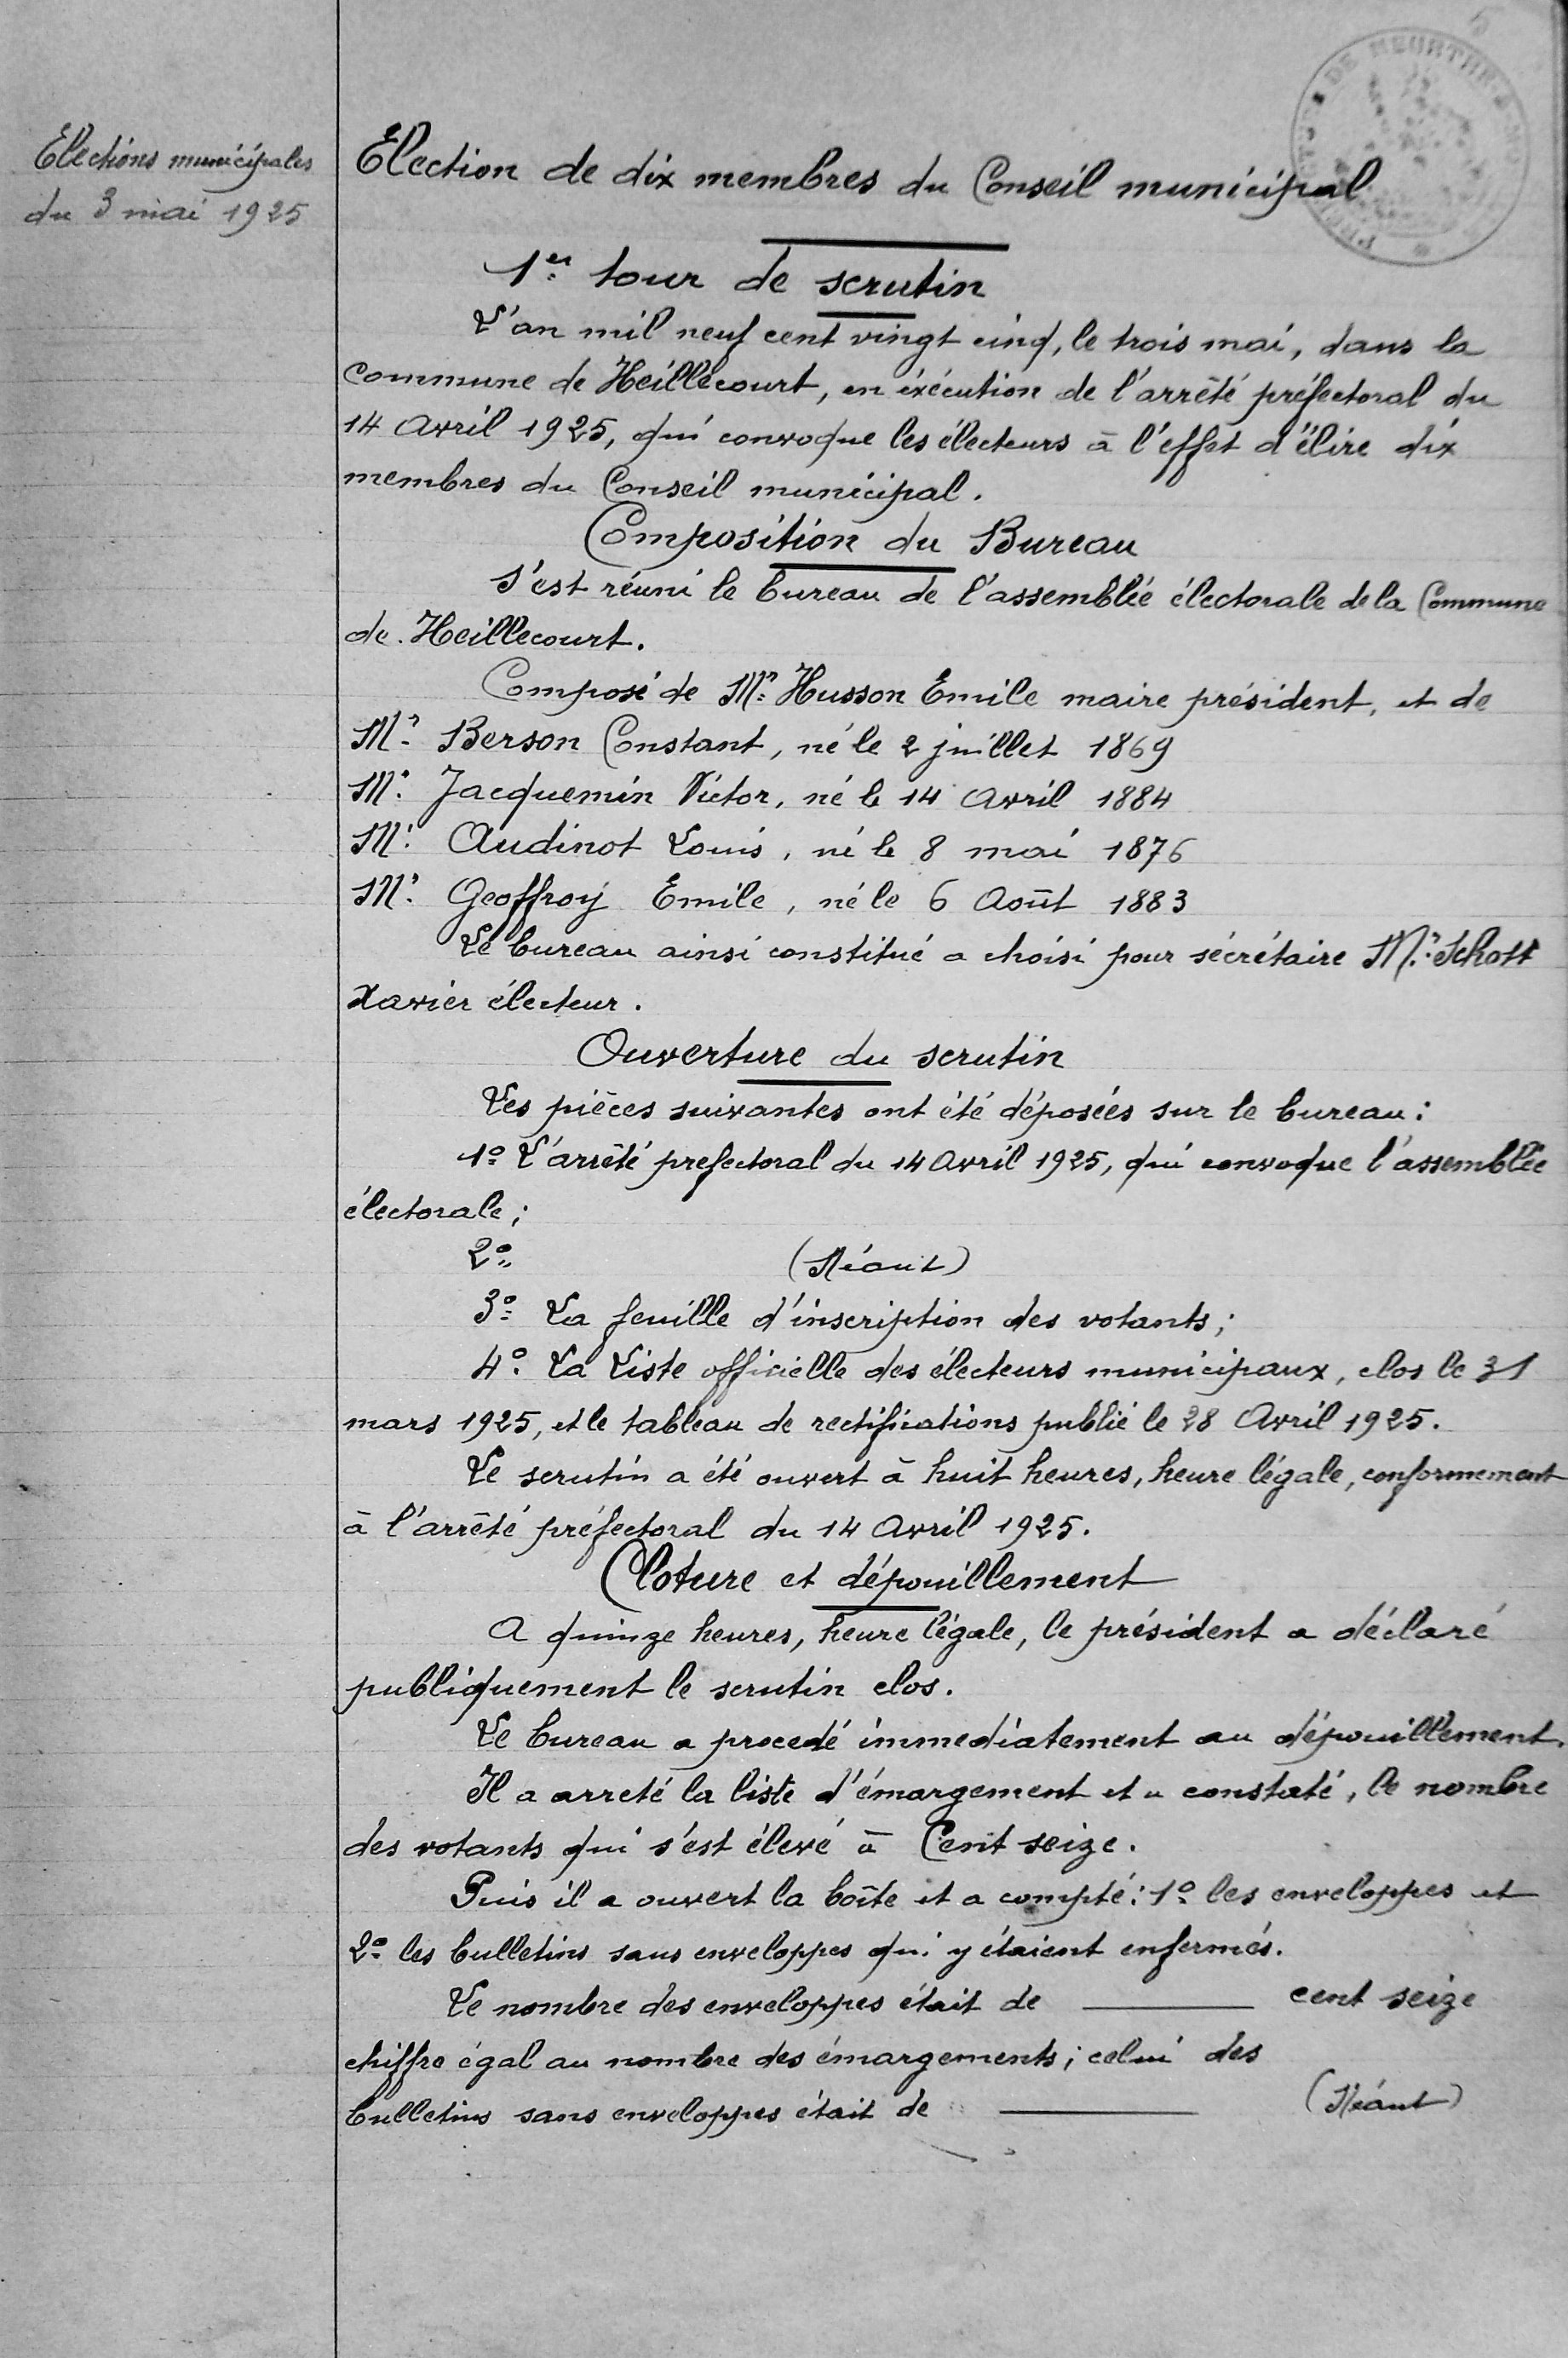 Elections municipales
du 3 mai 1925
Election de dix membres du Conseil municipal
1er tour de scrutin
L'an mil neuf cent vingt cinq, le trois mai, dans la
commune de Heillecourt, en éxécution de l'arrêté préfectoral du
14 Avril 1925, qui convoque les électeurs à l'effet d'élire dix
membres du Conseil municipal.
Composition du Bureau
S'est réuni le bureau de l'assemblée électorale de la Commune
de Heillecourt.
Composé de Mr Husson Emile maire président, et de
Mr Berson Constant, né le 2 juillet 1869
Mr Jacquemin Victor, né le 14 Avril 1884
Mr Audinot Louis, né le 8 mai 1876
Mr Geoffroy Emile, né le 6 Août 1883
Le bureau ainsi constitué a choisi pour sécrétaire Mr Schott
Xavier électeur.
Ouverture du scrutin
Les pièces suivantes ont été déposées sur le bureau :
1º L'arrêté prefectoral du 14 Avril 1925, qui convoque l'assemblée
électorale ;
2º (Néant)
3º La feuille d'inscription des votants ;
4º La Liste officielle des électeurs municipaux, clos le 31
mars 1925, et le tableau de rectifications publié le 28 Avril 1925.
Le scrutin a été ouvert à huit heures, heure légale, conformement
à l'arrêté préfectoral du 14 Avril 1925.
Cloture et dépouillement
A quinze heures, heure légale, le président a déclaré
publiquement le scrutin clos.
Le bureau a procedé immediatement au dépouillement.
Il a arreté la liste d'émargement et a constaté, le nombre
des votants qui s'est élevé à Cent seize.
Puis il a ouvert la boîte et a compté : 1º les enveloppes et
2º les bulletins sans enveloppes qui y étaient enfermés.
Le nombre des enveloppes était de ——— cent seize
chiffre égal au nombre des émargements ; celui des
bulletins sans enveloppes était de ——— (Néant)